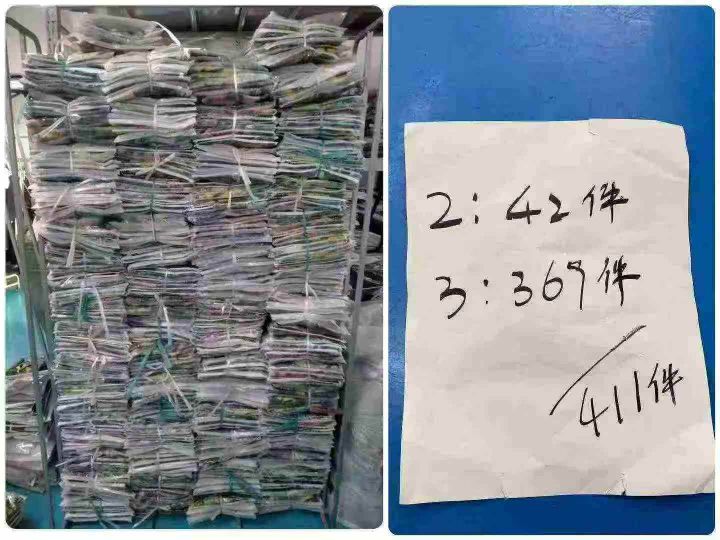 2：42件
3：369件
411件